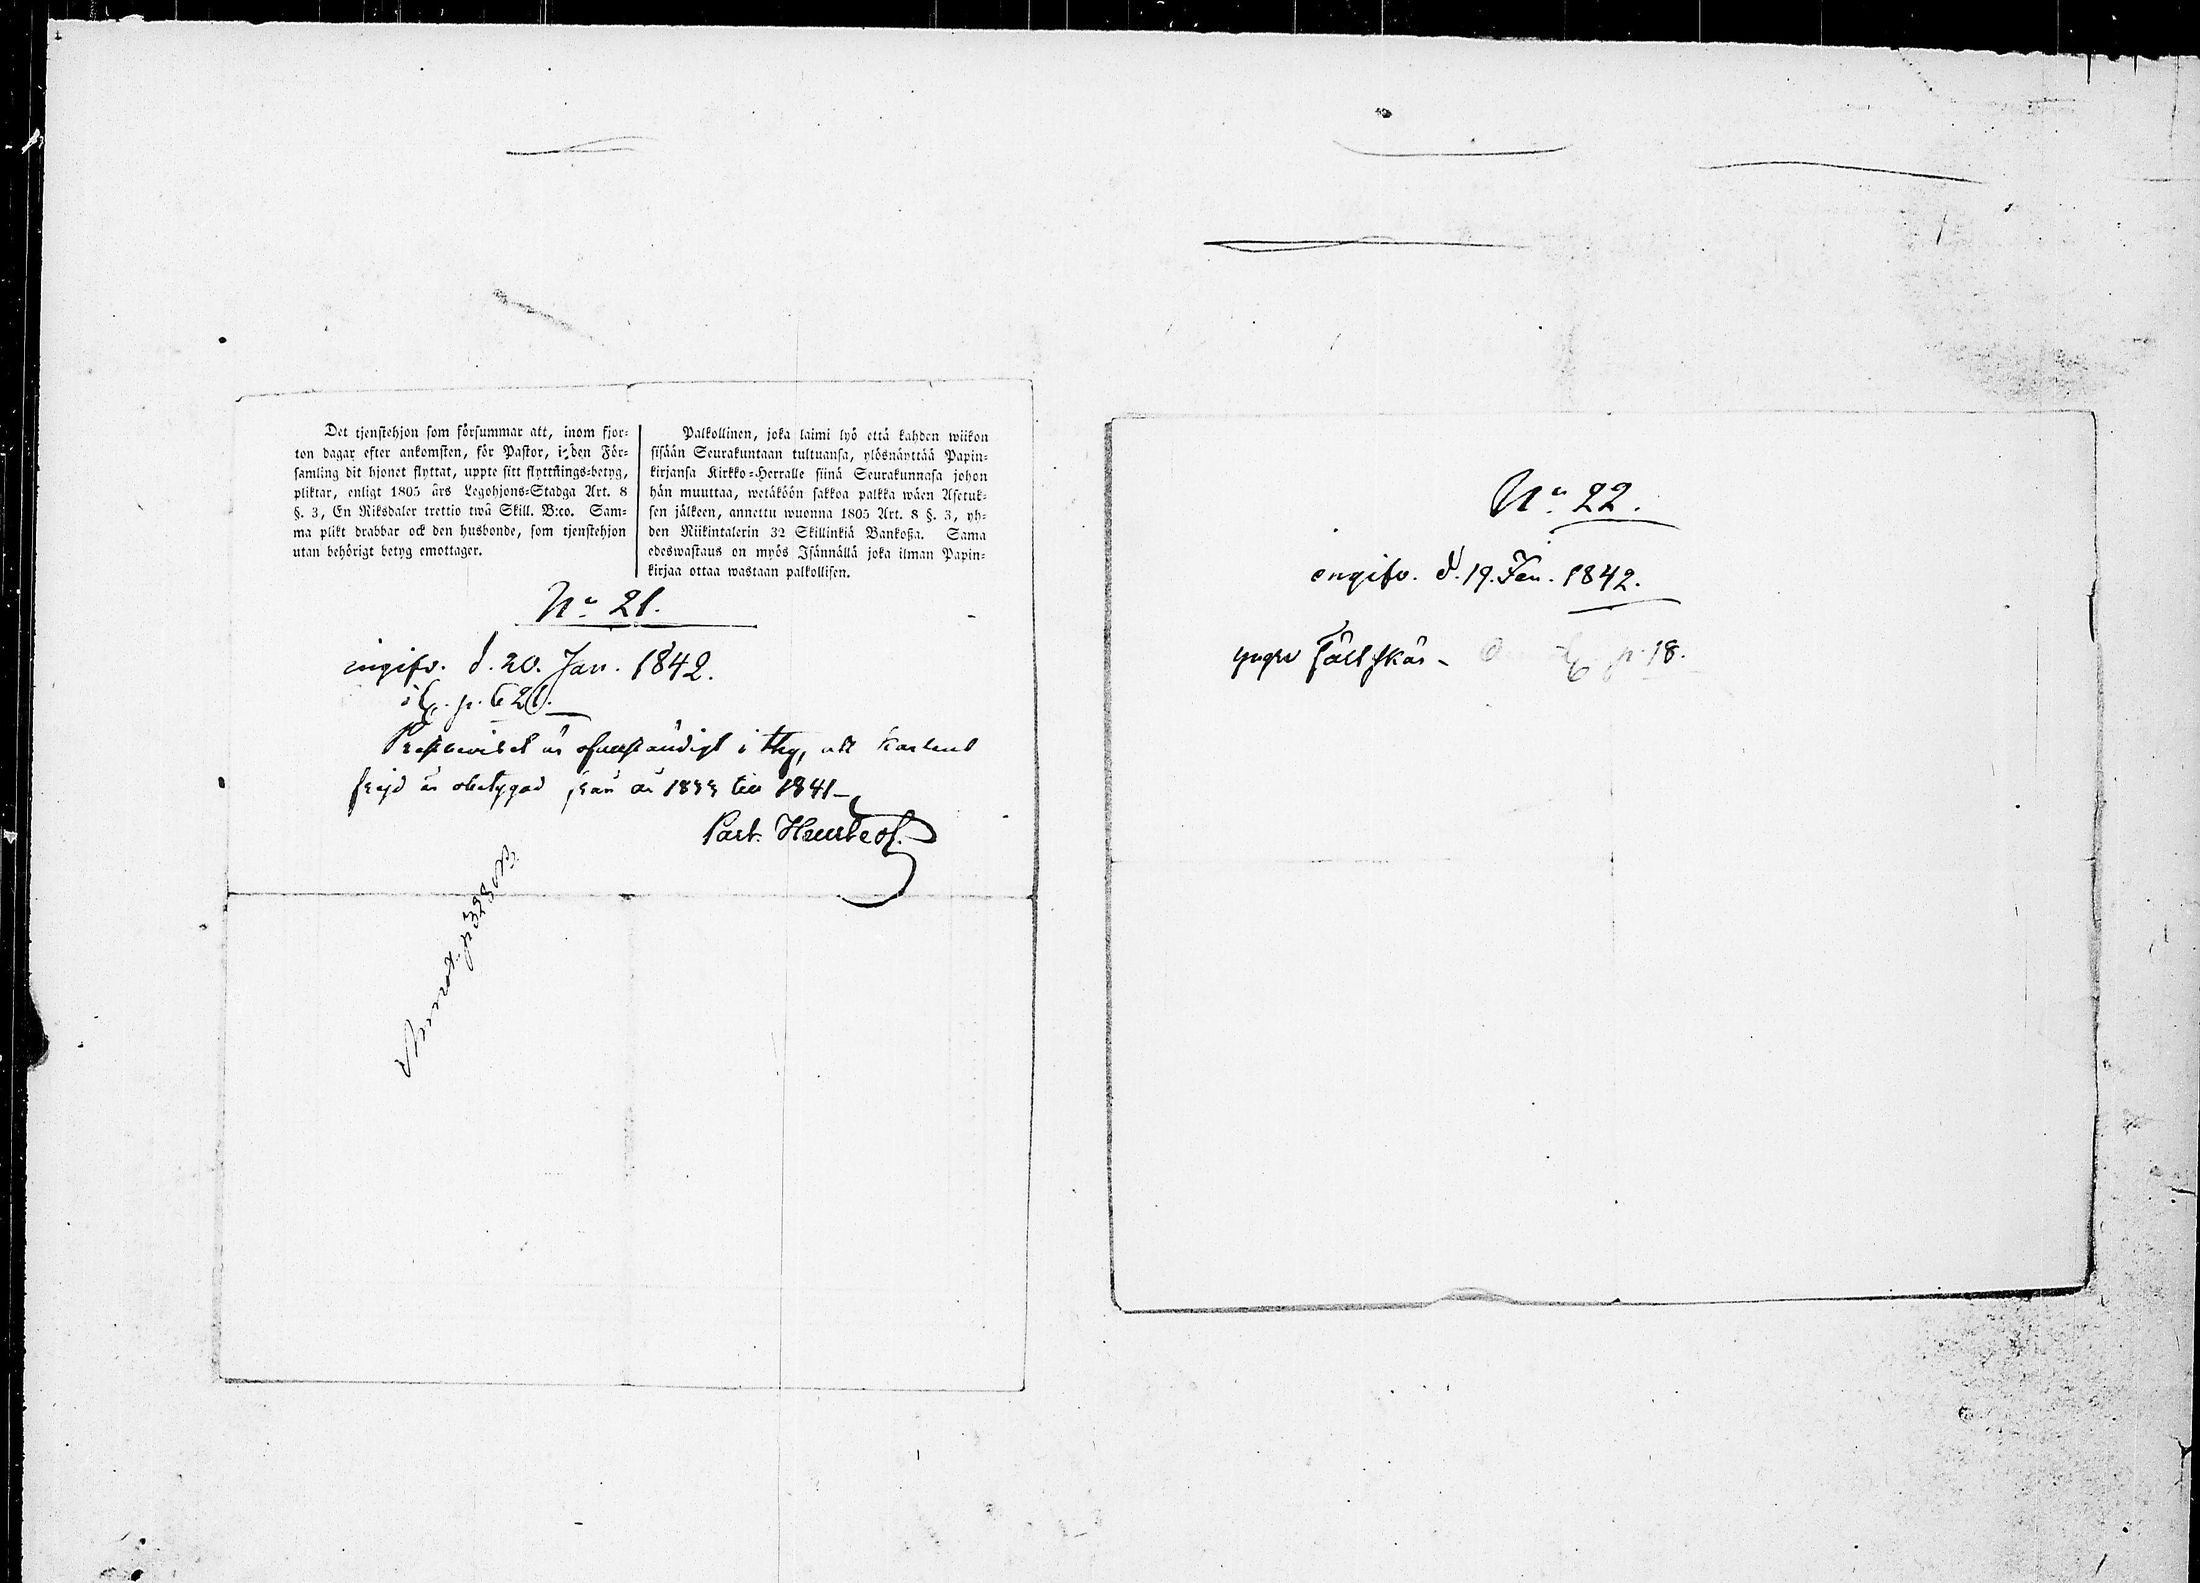 Det tjenstehjon som försummar att, inom fjor-
ton dagar efter ankomsten, för Pastor, i den För-
samling dit hjonet flyttat, uppte sitt flyttnings-betyg,
pliktar, enligt 1805 års Legohjons-Stadga Art. 8
§. 3, En Riksdaler trettio twå Skill. B:co. Sam-
ma plikt drabbar ock den husbonde, som tjenstehjon
utan behörigt betyg emottager.
Palkollinen, joka laimi lyö että kahden wiikon
sisään Seurakuntaan tultuansa, ylösnäyttää Papin-
kirjansa Kirkko-Herralle siinä Seurakunnasa johon
hän muuttaa, wetäköön sakkoa palkka wäen Asetuk-
sen jälkeen, annettu wuonna 1805 Art. 8 §. 3, yh-
den Riikintalerin 32 Skillinkiä Bankoßa. Sama
edeswastaus on myös Isännällä joka ilman Papin-
kirjaa ottaa wastaan palkollisen.
No 21.
ingifv. d. 20. Jan. 1842.
p. 621.
Prestbeviset är ofullständigt i thy, att karlens
frejd är obetygad från år 1833 till 1841 –
Past.
p 328
No 22.
ingifv. d. 19. Jan. 1842.
yngre Fältskär – p. 18.